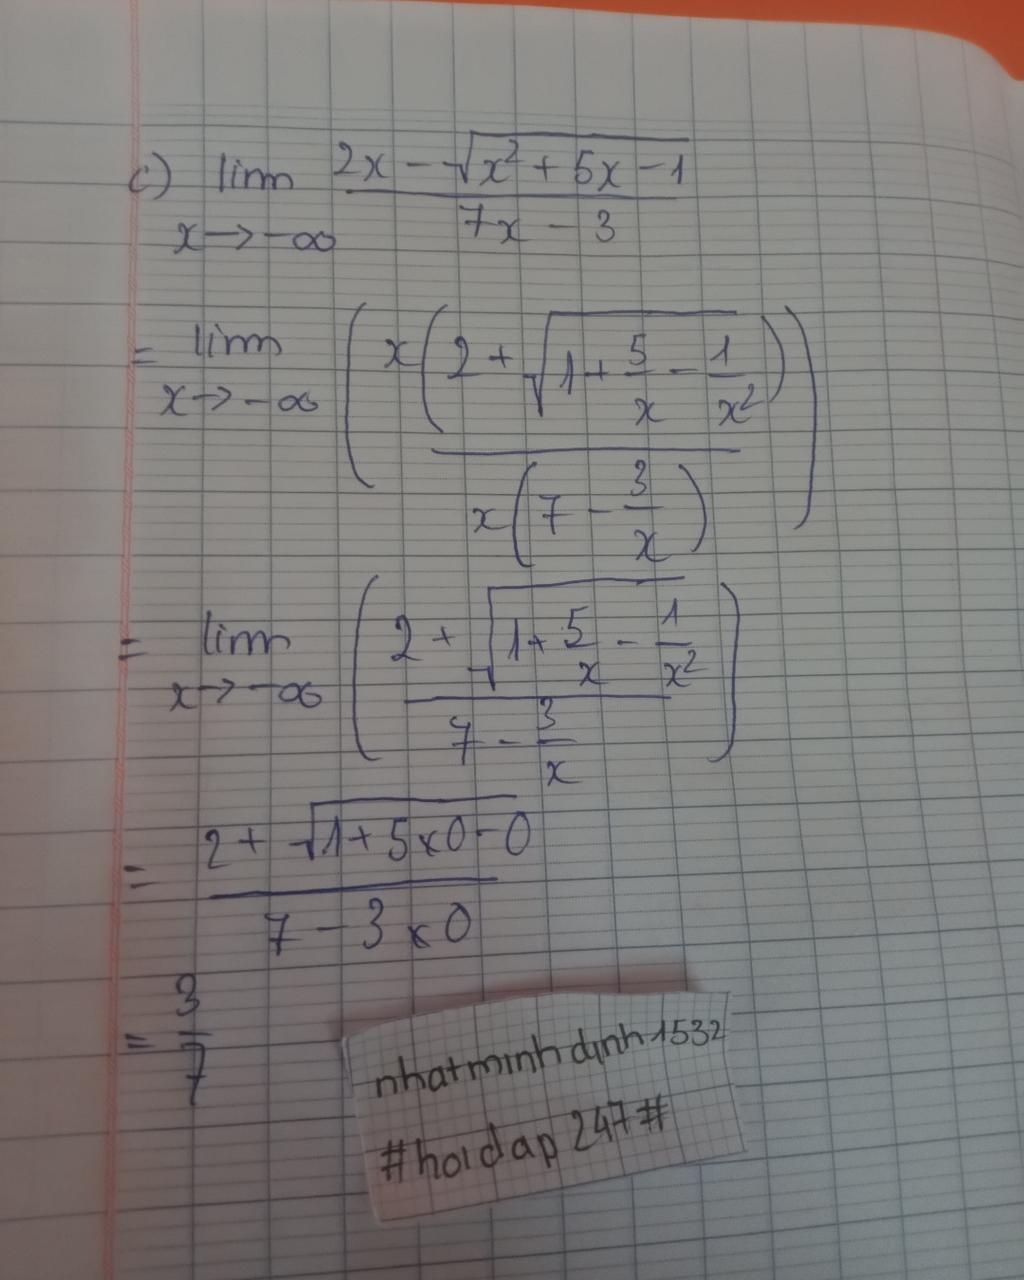 c) lim 2x - √(x² + 5x - 1) / 7x - 3
x → -∞
= lim (x(2 + √(1 + 5/x - 1/x²)) / x(7 - 3/x))
x → -∞
= lim (2 + √(1 + 5/x - 1/x²) / 7 - 3/x)
x → -∞
= 2 + √(1 + 5 x 0 - 0) / 7 - 3 x 0
= 3/7
nhatminhdinh1532
#hoidap247#